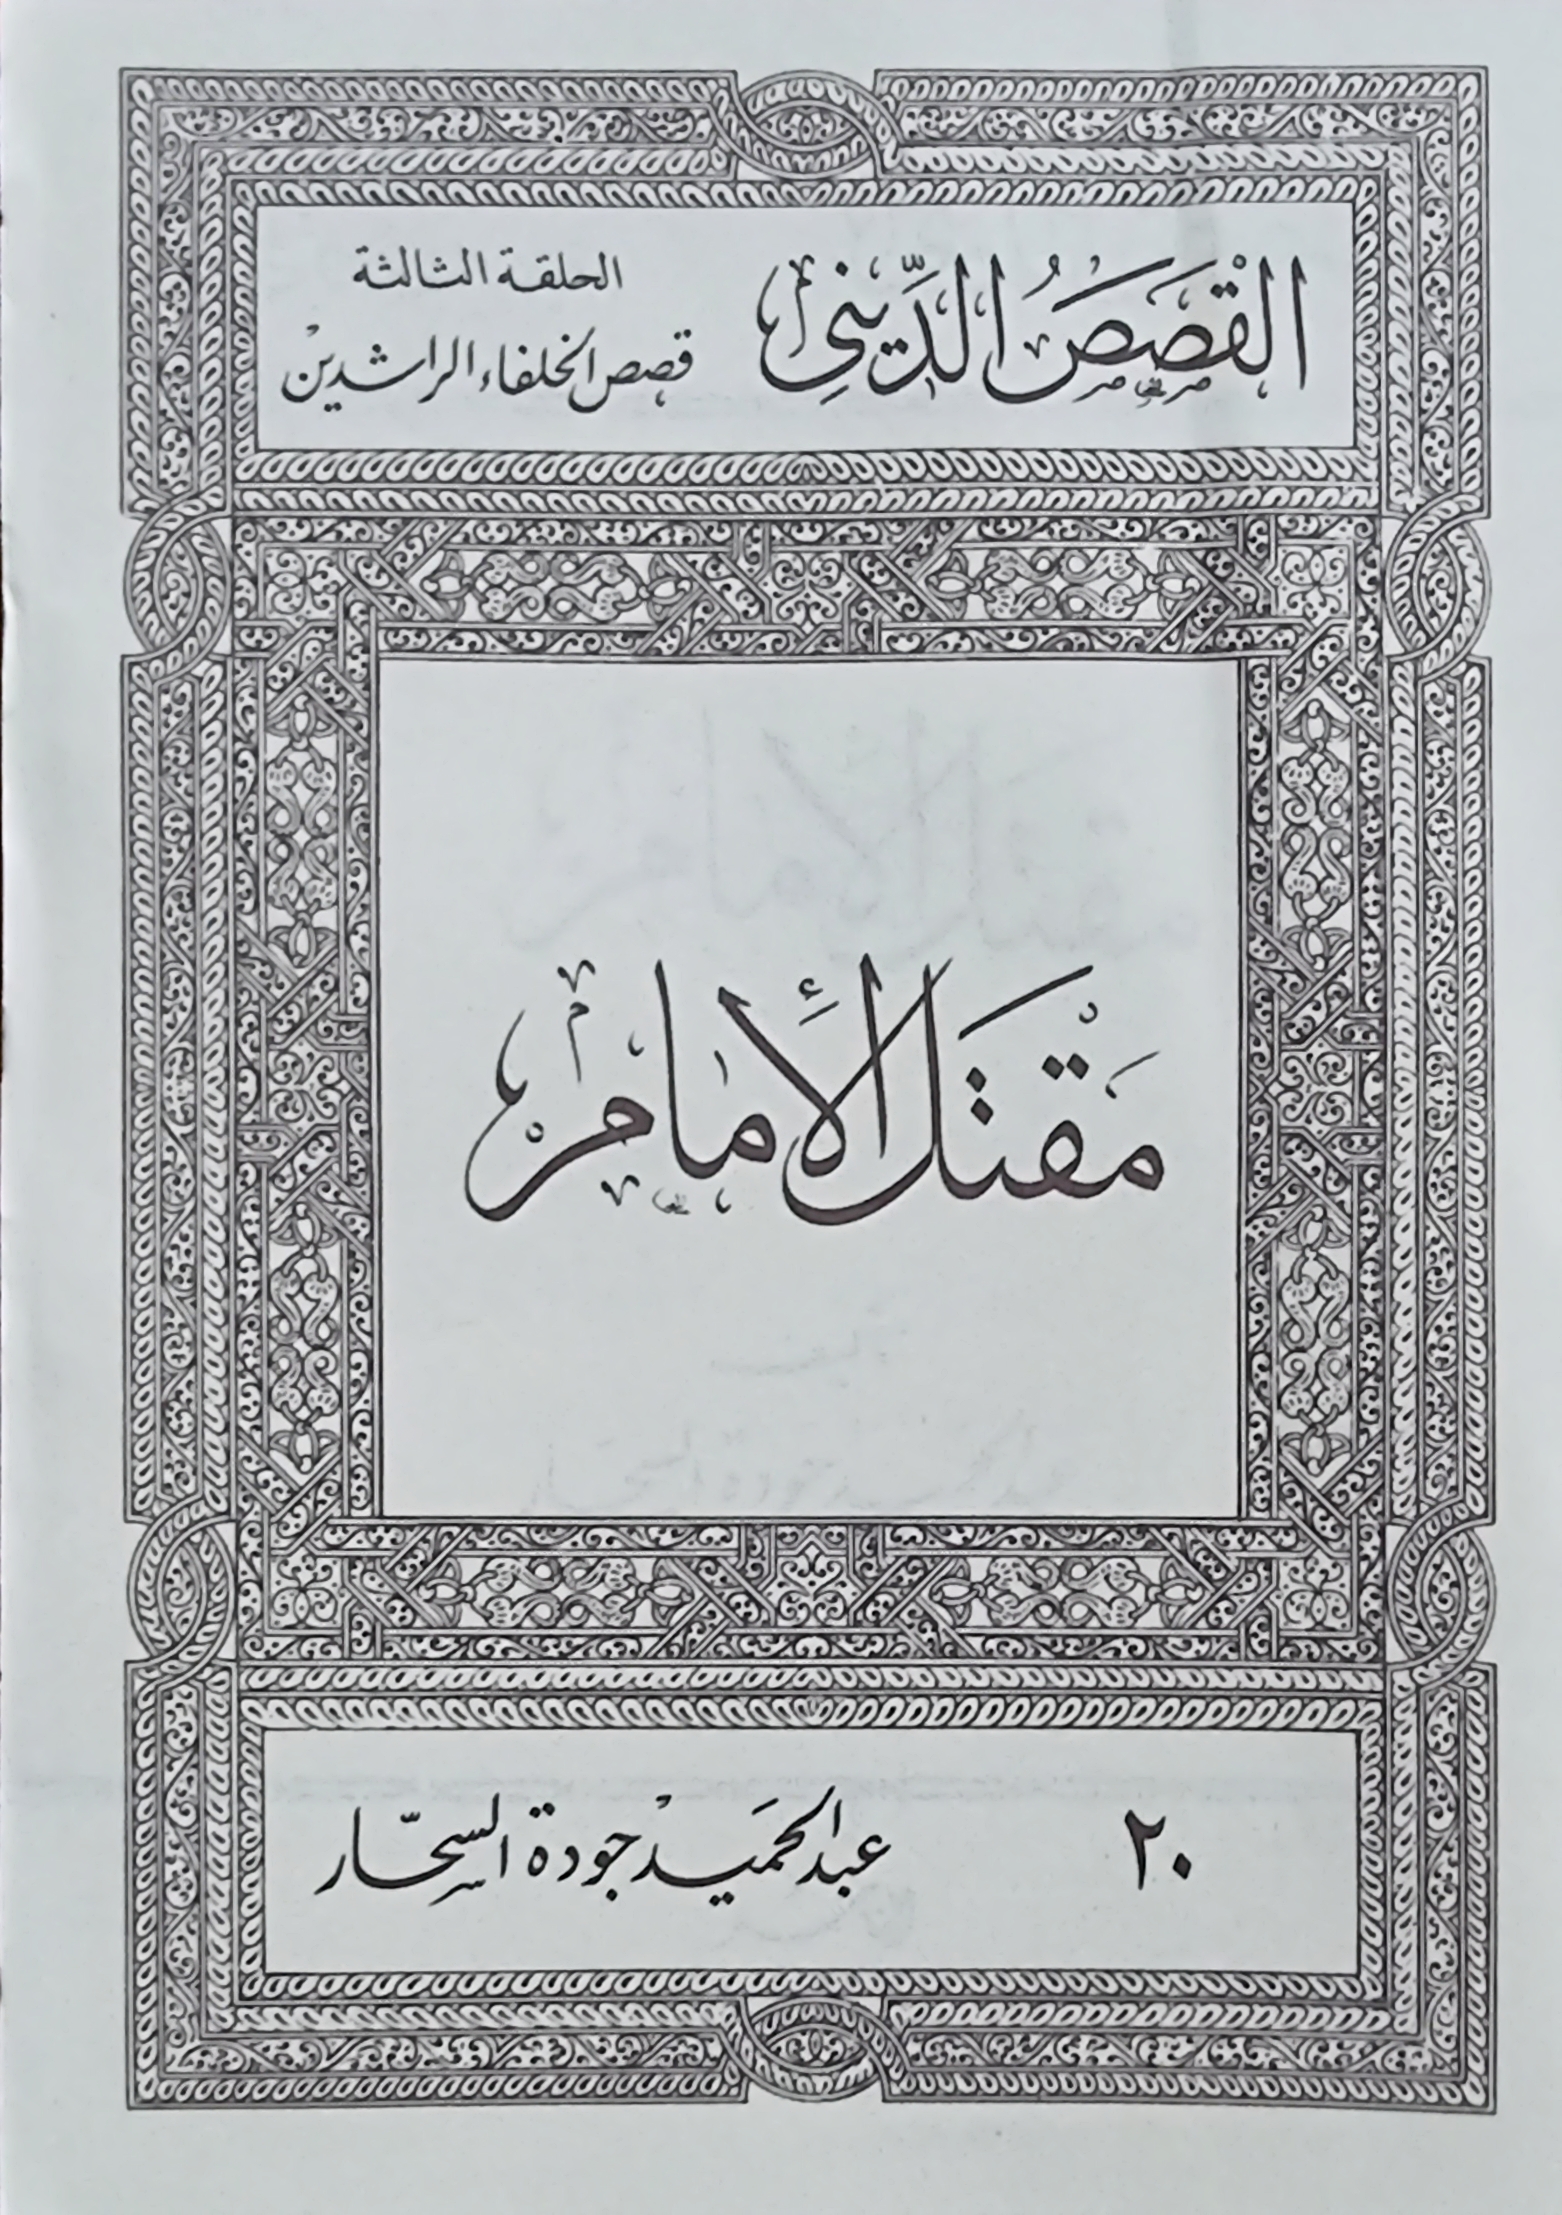 القَصَصُ الدِّينِي
الحلقة الثالثة
قصص الخلفاء الراشدين
مَقْتَل الأَمام
٢٠
عبد الحميد جودة السحّار